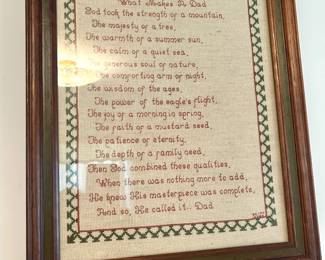 What Makes A Dad
God took the strength of a mountain,
The majesty of a tree,
The warmth of a summer sun,
The calm of a quiet sea,
The generous soul of nature,
The comforting arm of night,
The wisdom of the ages,
The power of the eagle's flight,
The joy of a morning in spring,
The faith of a mustard seed,
The patience of eternity,
The depth of a family need,
Then God combined these qualities,
When there was nothing more to add,
He knew His masterpiece was complete,
And so, He called it.. Dad